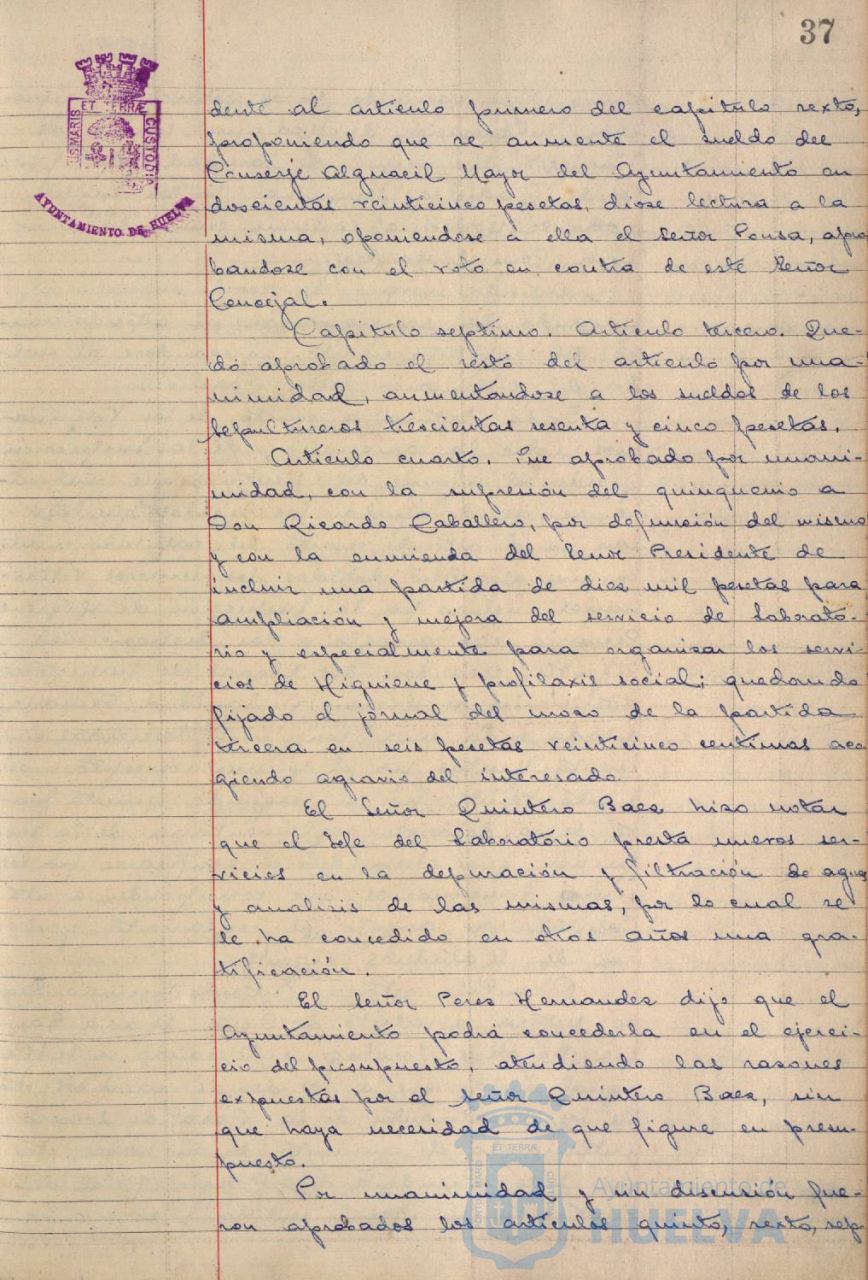 37
ET TERRÆ CUSTODIA
AYUNTAMIENTO DE HUELVA
dente al artículo primero del capitulo sexto,
proponiendo que se aumente el sueldo del
Conserje Alguacil Mayor del Ayuntamiento en
doscientas veinticinco pesetas, diose lectura a la
misma, oponiendose a ella el Señor Ponsa, apro
bandose con el voto en contra de este Señor
Concejal.
Capitulo septimo. Articulo tercero. Que-
dó aprobado el resto del articulo por una-
nimidad, aumentandose a los sueldos de los
sepultureros trescientas sesenta y cinco pesetas.
Articulo cuarto. Fue aprobado por unani-
midad, con la supresión del quinquenio a
Don Ricardo Caballero, por defunción del mismo
y con la enmienda del Señor Presidente de
incluir una partida de diez mil pesetas para
ampliación y mejora del servicio de Laborato-
rio y especialmente para organizar los servi-
cios de Higuiene y profilaxis social; quedando
fijado el jornal del mozo de la partida
tercera en seis pesetas veinticinco centimos aco
giendo agravio del interesado.
El Señor Quintero Baez hizo notar
que el Jefe del Laboratorio presta nuevos ser-
vicios en la depuración y filtración de aguas
y analisis de las mismas, por lo cual se
le ha concedido en otros años una gra-
tificación.
El Señor Perez Hernandez dijo que el
Ayuntamiento podrá concederla en el ejerci-
cio del presupuesto, atendiendo las razones
expuestas por el Señor Quintero Baez, sin
que haya necesidad de que figure en presu-
puesto.
Por unanimidad y sin discusión fue-
ron aprobados los articulos quinto, sexto, sép-
Ayuntamiento de
HUELVA